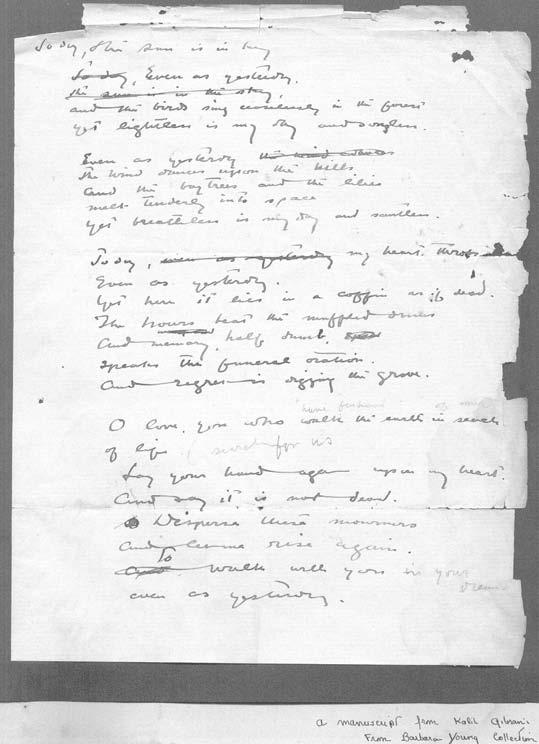 Today, the sun is in sky
Today, Even as yesterday.
the sun is in the sky,
and the birds sing in the forest
yet lightless is my day and songless.
Even as yesterday the wind dances
the wind dances upon the hills
And the bay trees and the lilies
melt tenderly into space
yet breathless is my day and scentless.
Today, even as yesterday my heart throbs
Even as yesterday.
Yet here it lies in a coffin as if dead.
The hours beat the muffled drums
And memory, half dumb,
speaks the funeral oration.
And regret is digging the grave.
have
O love, you who walk the earth in search
of life search for us
Lay your hand again upon my heart
And say it is not dead.
Disperse these mourners
And let me rise again.
To
And walk with you in your
dream
even as yesterday.
a manuscript from Kahlil Gibran's
From Barbara Young Collection